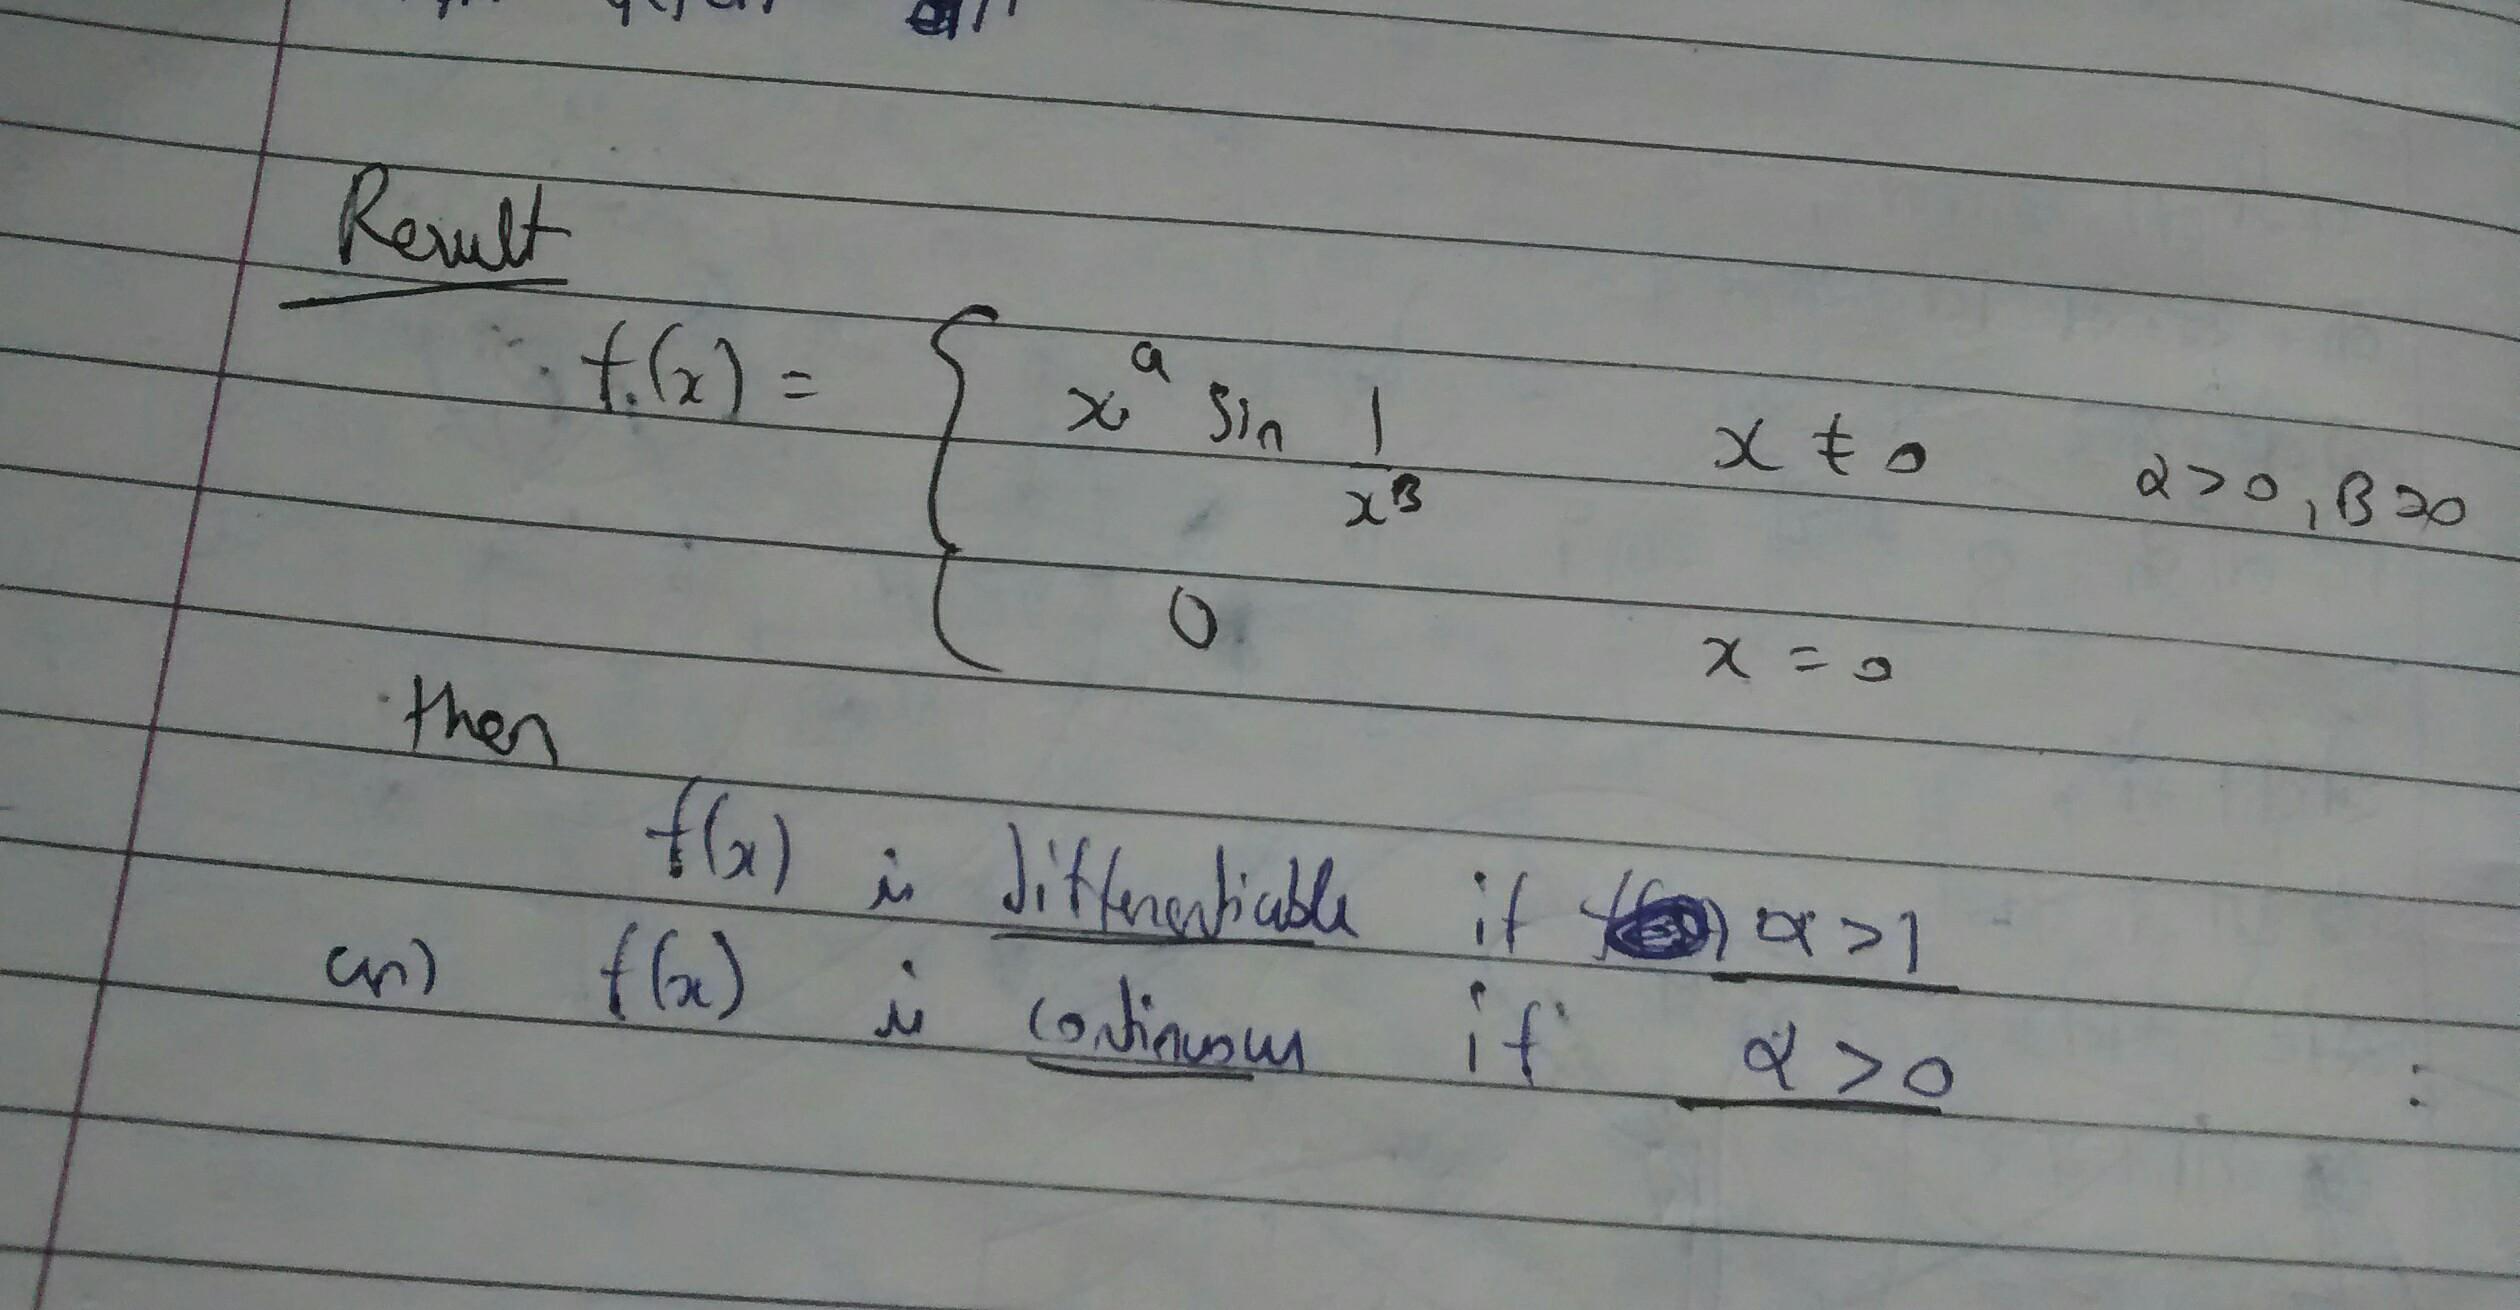 Result
f(x) = { x^a sin 1/x^β x ≠ 0 α>0, β>0
0 x = 0
then
f(x) is differentiable if α>1
f(x) is continuous if α>0